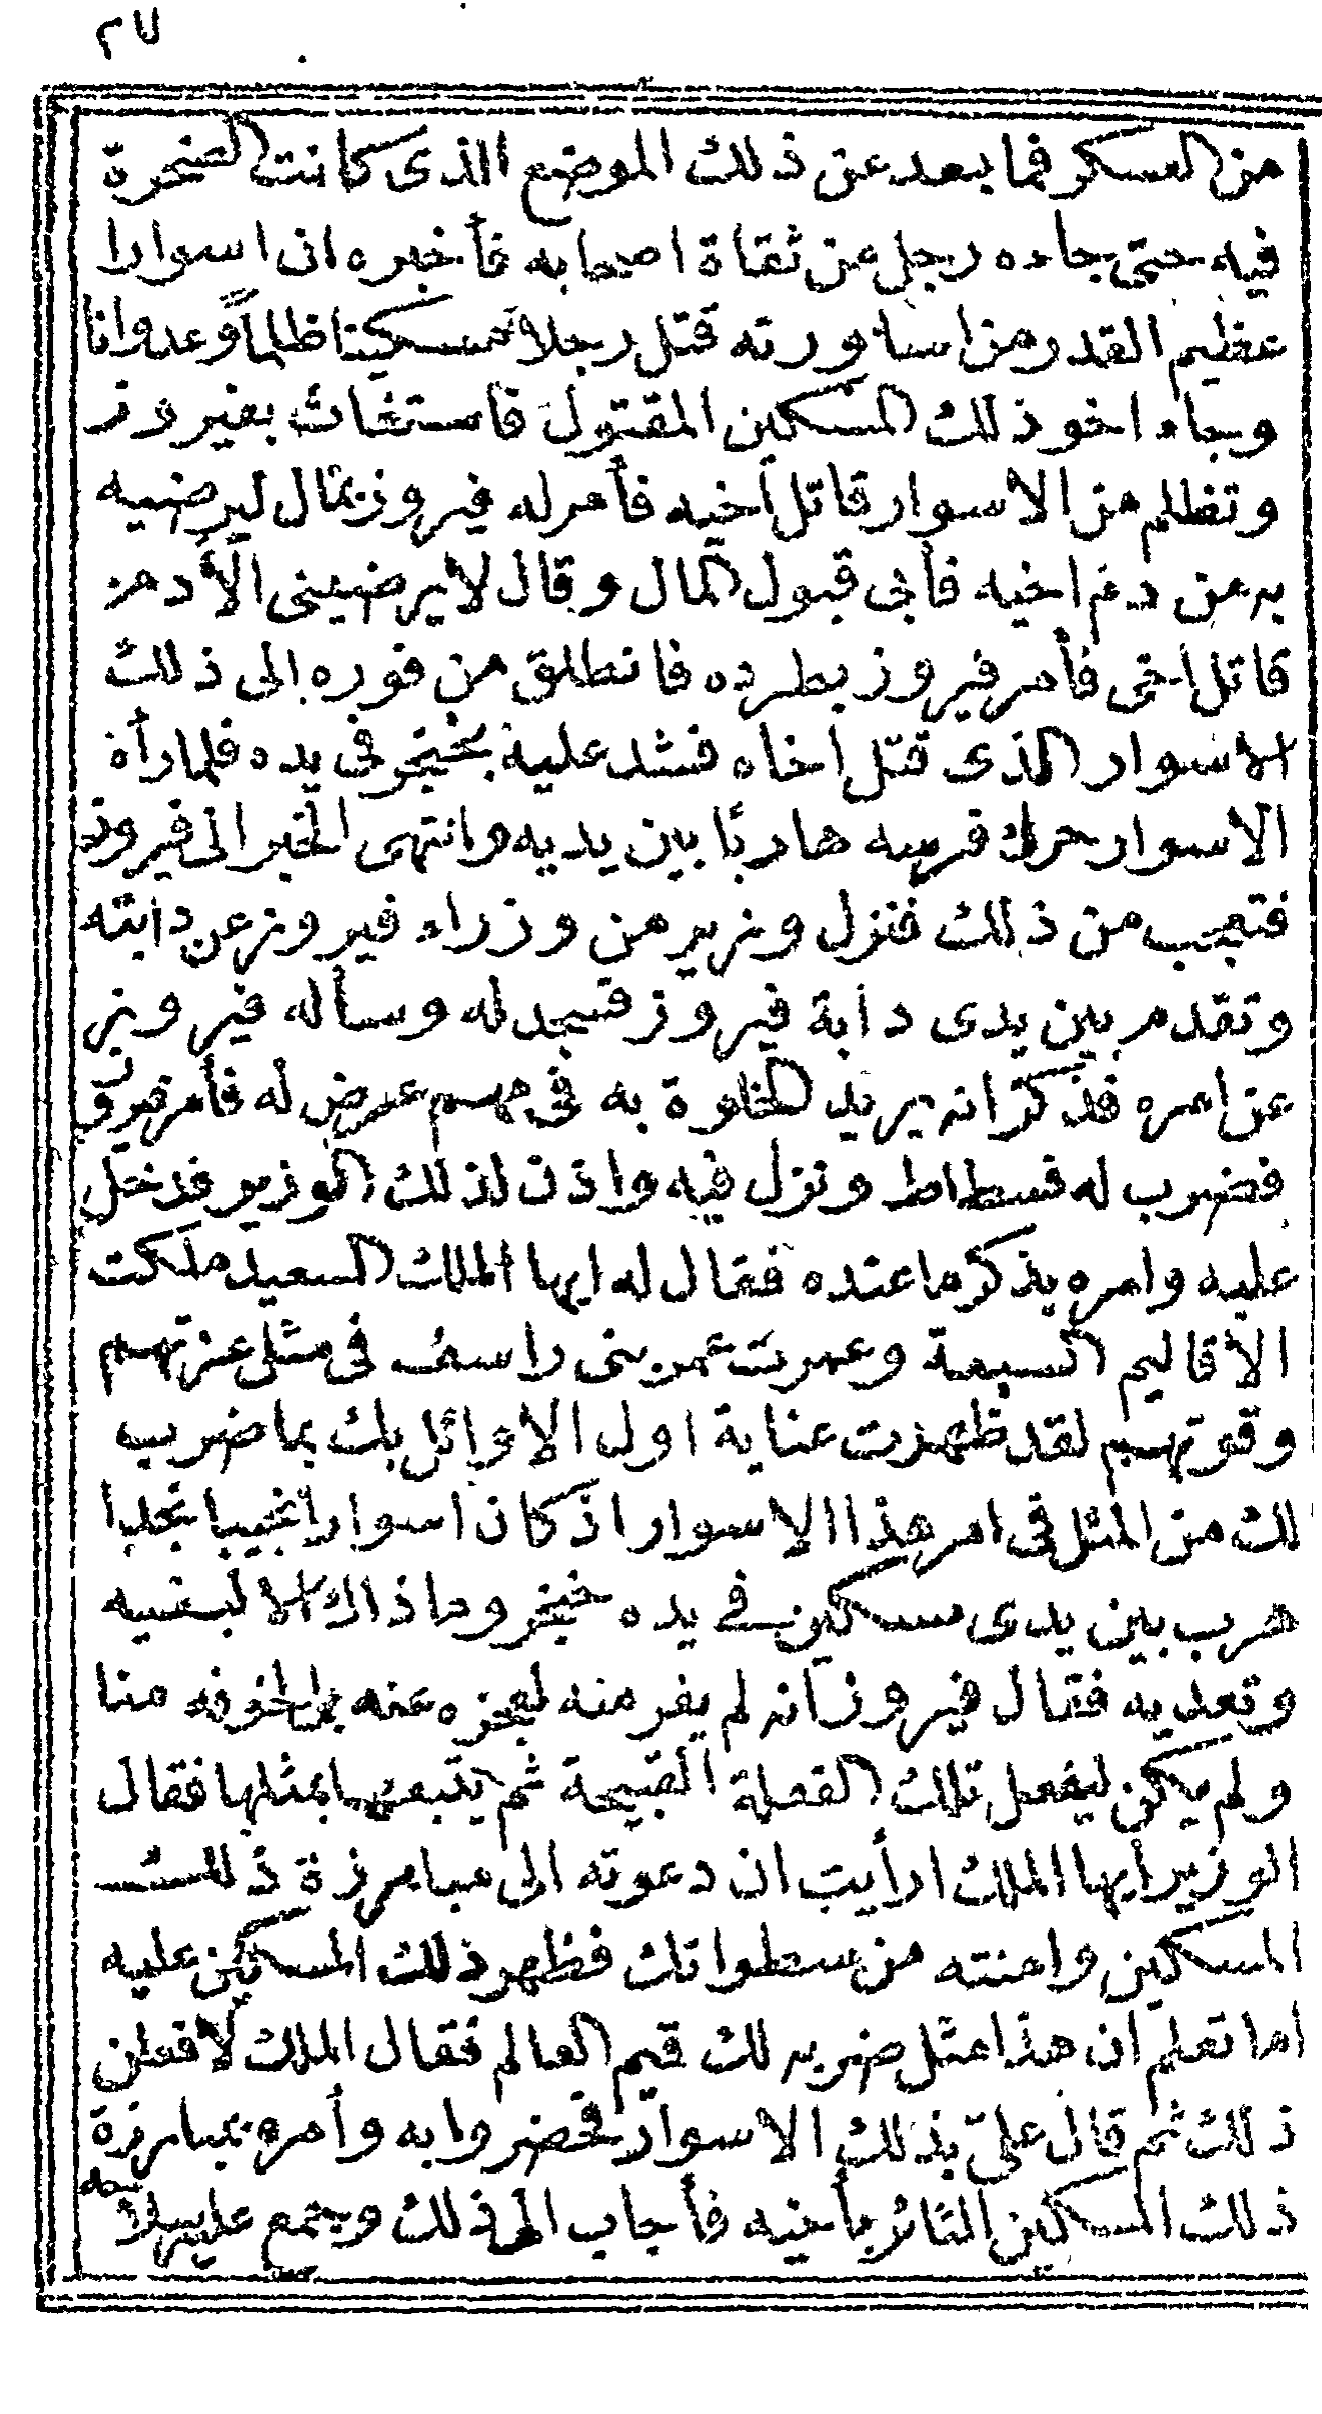 ٢٧
من العسكر فما بعد عن ذلك الموضع الذى كانت الصخرة
فيه حتى جاءه رجل من ثقاة اصحابه فأخبره ان اسوارا
عظيم القدر من اساورته قتل رجلا مسكينا ظلماً وعدوانا
وجاء اخو ذلك المسكين المقتول فاستغاث بفيروز
وتظلم من الاسوار قاتل أخيه فأمر له فيروز بمال ليرضيه
به عن دم اخيه فأبى قبول المال وقال لا يرضينى الا دم
قاتل اخى فأمر فيروز بطرده فانطلق من فوره إلى ذلك
الاسوار الذى قتل اخاه فشد عليه بخنجر فى يده فلما رأه
الاسوار حرك فرسه هاربًا بين يديه وانتهى الخبر الى فيروز
فتعجب من ذلك فنزل وزير من وزراء فيروز عن دابته
وتقدم بين يدى دابة فيروز فسجد له وسأله فيروز
عن امره فذكر انه يريد الخلوة به فى مهم عرض له فأمر فيروز
فضرب له فسطاط ونزل فيه واذن لذلك الوزير فدخل
عليه وامره يذكر ما عنده فقال له ايها الملك السعيد ملكت
الأقاليم السبعة وعمرت عمر بنى راسف فى مثل عزتهم
وقوتهم لقد ظهرت عناية اول الاوائل بك بما ضرب
لك من المثل فى امر هذا الاسوار اذ كان اسوارا نجيبا نجدا
هرب بين يدى مسكين فى يده خنجر وما ذاك الا لبغيه
وتعديه فقال فيروز انه لم يفر منه لعجزه عنه بل لخوفه منا
ولم يكن ليفعل تلك الفعلة القبيحة ثم يتبعها بمثلها فقال
الوزير أيها الملك ارأيت ان دعوته الى مبارزة ذلك
المسكين وامنته من سطواتك فظهر ذلك المسكين عليه
اما تعلم ان هذا مثل ضربه لك قيم العالم فقال الملك لأفعلن
ذلك ثم قال علىّ بذلك الاسوار فحضروا به وأمره بمبارزة
ذلك المسكين الثائر بأخيه فأجاب الى ذلك وجمع عليه سلاحه